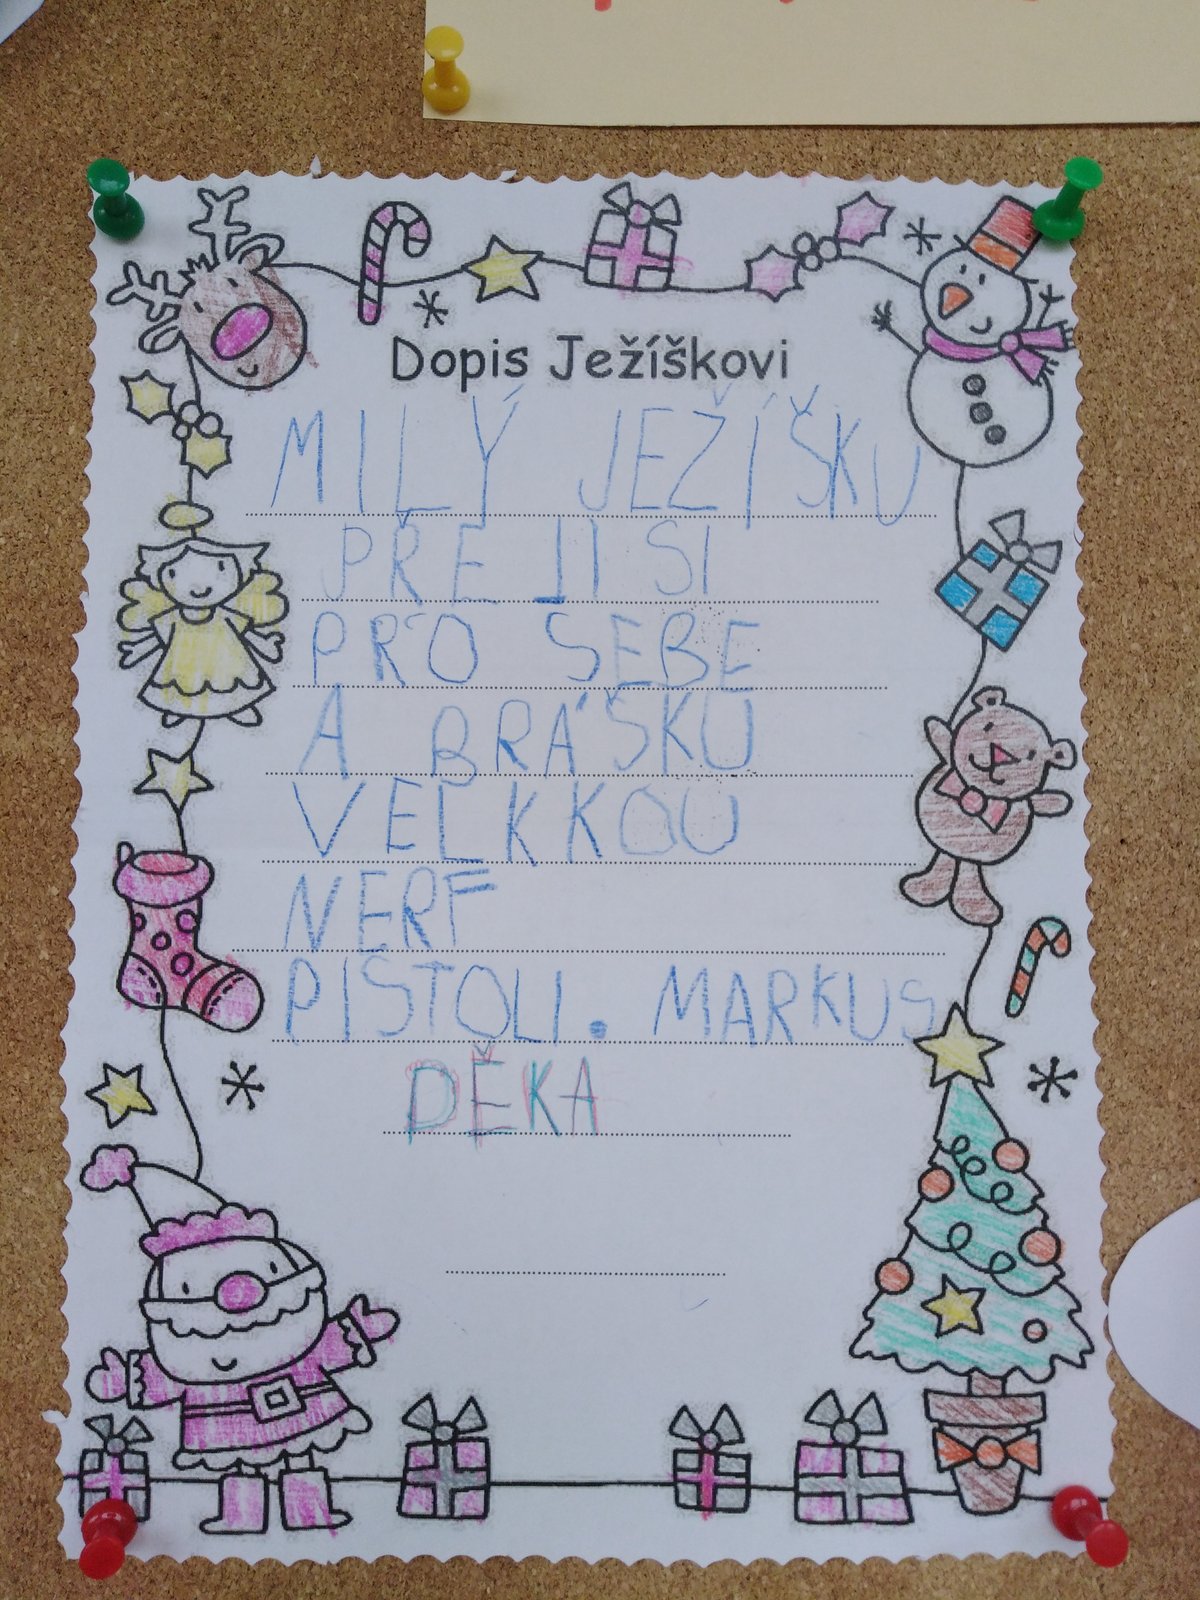 Dopis Ježíškovi
MILÝ JEŽÍŠKU
PŘEJI SI
PRO SEBE
A BRÁŠKU
VELKKOU
NERF
PISTOLI. MARKUS
DĚKA